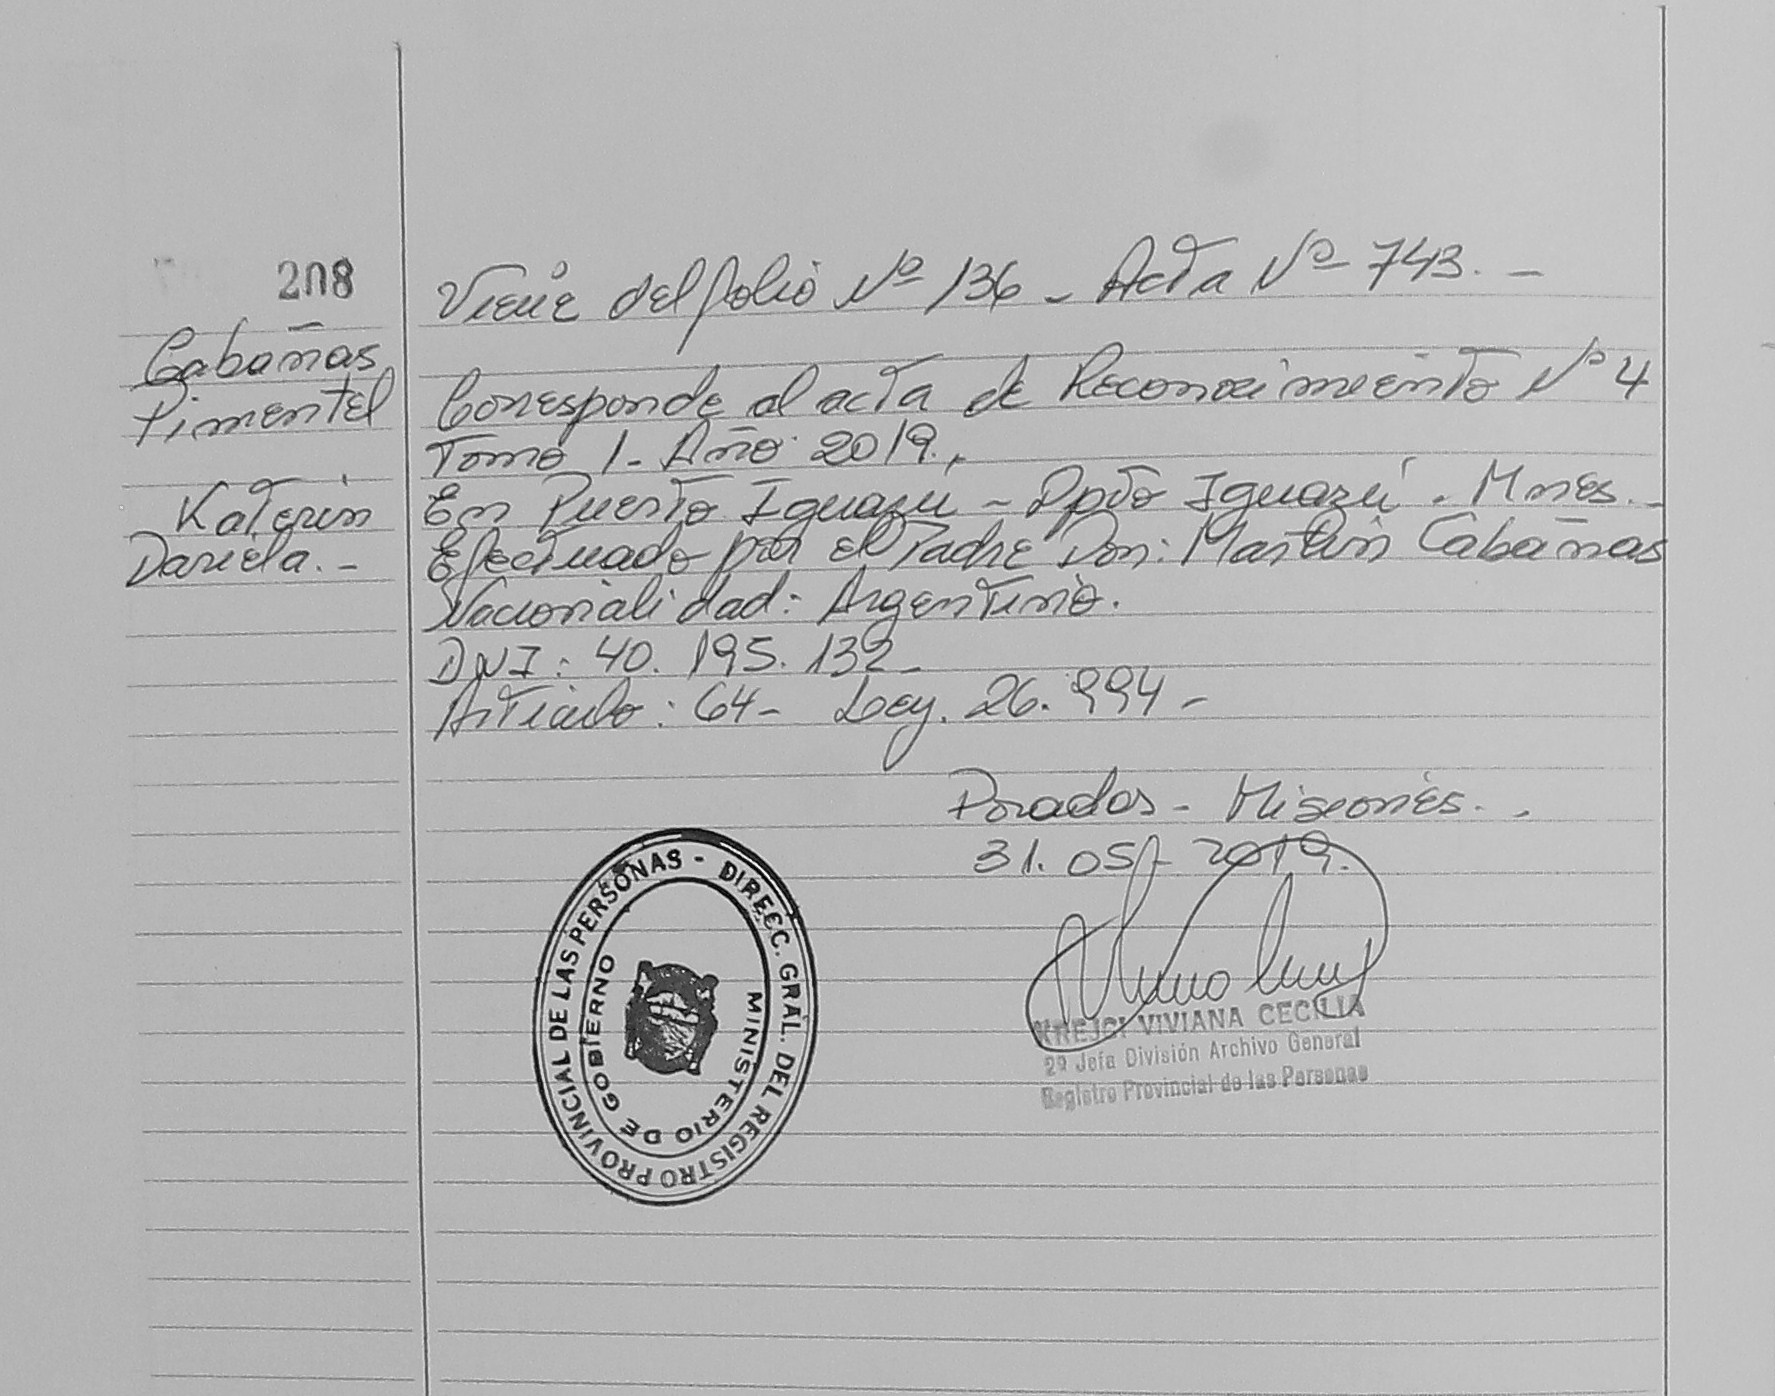 208
Cabañas
Pimentel
Katerin
Daniela. -
Viene del folio Nº 136 - Acta Nº 743. -
Corresponde al acta de Reconocimiento Nº 4
Tomo 1 - Año 2019.
En Puerto Iguazú - Dpto Iguazú . Mnes. -
Efectuado por el Padre Don: Martin Cabañas
Nacionalidad: Argentino.
DNI: 40. 195. 132 -
Articulo: 64 - Ley. 26. 994 -
Posadas - Misiones.
31. 05 - 2019.
DIRECC. GRAL. DEL REGISTRO PROVINCIAL DE LAS PERSONAS -
MINISTERIO DE GOBIERNO
KREJCI VIVIANA CECILIA
2º Jefa División Archivo General
Registro Provincial de las Personas